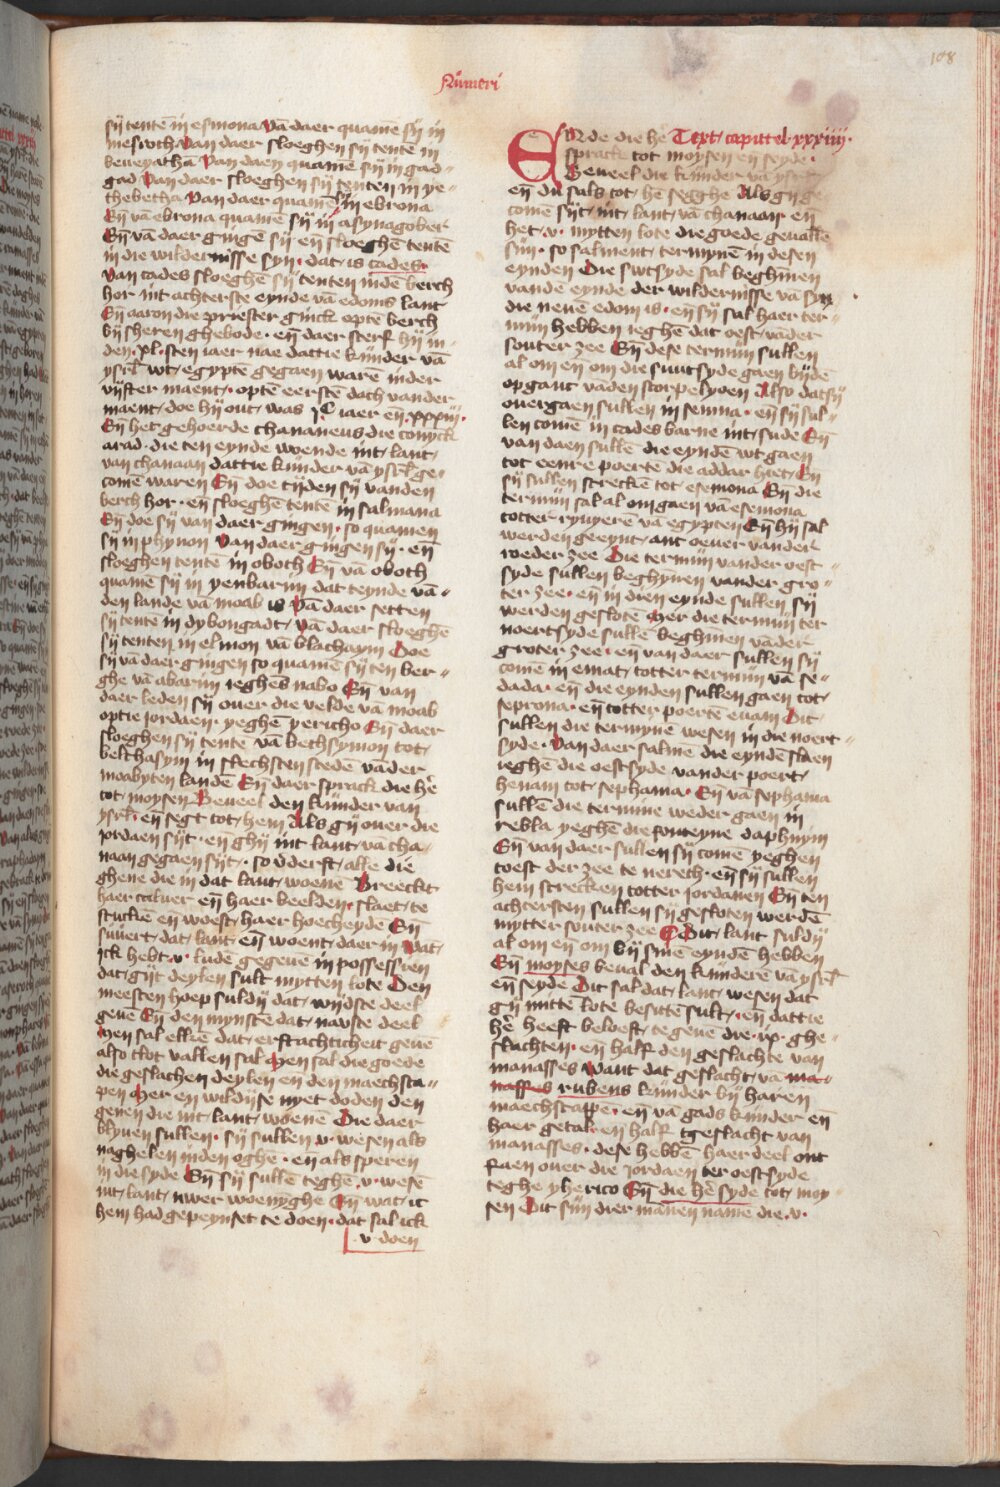 108
Nūmeri
sij tentē in esmona Vā daer quamē sij in
meseroth Van daer sloeghen sij tentē in
beneyatha Van daen quamē sij in gad-
gad Van daer sloeghen sij tenten in ye-
thebetha Van daer quamē sij in ebrona
Eñ vā ebrona quamē sij in asynagober
Eñ vā daer gingē sij eñ sloeghē tentē
in die wildernisse syn· dat is cades·
Van cades sloeghē sij tenten in dē berch
hor int achterste eynde vā edoms lant
Eñ aaron die priester ginck optē berch
bij sheren ghebode· eñ daer sterf hij in
den ·xl· sten iaer nae dattie kinder vā
ysrl wt egyptē gegaen warē inder
vijfter maent· optē eerstē dach vander
maent doe hij out was jᶜ iaer eñ xxxiij·
Eñ het gehoerde chananeus die conyck
arad· die ten eynde woende int lant
van chanaan dattie kinder vā ysrl ge-
comē waren Eñ doe tijden sij vanden
berch hor· eñ sloeghē tentē in salmana
Eñ doe sij van daer gingen· so quamen
sij in phynon Van daer gingen sij· eñ
sloeghen tentē in oboth Eñ vā oboth
quamē sij in yenbarim dat teynde vā-
den lande vā moab is Vā daer setten
sij tentē in dybongadt Vā daer sloeghē
sij tenten in elmon vā blachaym Doe
sij vā daer gingen so quamē sij ten ber-
ghe vā abarim ieghēs nabo Eñ van
daer leden sij ouer die velde vā moab
optie iordaen· yeghē yericho Eñ daer
sloeghen sij tentē vā bethsymon tot
belthasym in slechsten stedē vāder
moabyten landē Eñ daer sprack die hē
tot moysen Beueel den kinder van
ysrl· eñ segt tot hem Als gij ouer die
iordaen sijt· eñ ghij int lant vā cha-
naan gegaen sijt· so vderft alle die
ghene die in dat lant woenē Breeckt
haer caluer eñ haer beelden· slaet te
stuckē eñ woest haer hoecheydē Eñ
suuert dat lant eñ woent daer in Wat
ick hebt v· ludē gegeuē in possessien
dat gijt deylen sult mytten lote Den
meesten hoep suldij dat wijdste deel
geuē Eñ den mynstē dat nauste deel
Men sal elkē dat erftachticheit geuē
also tlot vallen sal Men sal die goede
die geslachen deylen en den maechsta-
pen Mer en wildijse nyet doden den
genen die int lant woenē Die daer
blyuen sullen· sij sullen v· wesen als
naghelen inden oghē· eñ als speren
in die syde Eñ sij sullē teghē v· wesē
int lant uwer woenyghe Eñ wat ic
hem had gepeynset te doen· dat sal ick
v· doen
Ende die hē Text capittel xxxiiij·
sprack tot moysen eñ seyde·
Beueel die kinder vā ysrl
eñ du sals tot hē segghe Als gij ge-
comē sijt int lant vā chanaan eñ
het v· mytten lote die goede geuallē
sijn· so salment termynē in desen
eynden Die suutsyde sal beghinnen
vandē eynde der wildernisse vā syn
die neuē edom is· eñ sij sal haer ter-
mijn hebben ieghē dat oest vāder
souter zee Eñ dese termijn sullen
al om eñ om die suutsyde gaen bij dē
opganc vādē scorpelyoen Also dat sij
ouergaen sullen in senna· eñ sij sul-
len comē in cades barne int sude Eñ
van daen sullē die eyndē wt gaen
tot eenre poerte die addar hiet Eñ
sij sullen streckē tot esemona Eñ die
termijn sal al om gaen vā esemona
totter ryuyerē vā egypten Eñ hij sal
werden geeynt ant oeuer vander
roeder zee Die termijn vander oest
syde sullen beghynen vander gro-
ter zee· eñ in dien eynde sullen sij
werden geslotē Mer die termijn ter
noertsyde sullē beghinen vāder
groter zee· eñ van daer sullen sij
comē in emat totter termijn vā se-
dada· eñ die eynden sullen gaen tot
seprona· eñ totter poertē euam Dit
sullen die termynē wesen in die noert-
syde· Van daer salmē die eyndē slaen
ieghē die oestsyde vander poert
henam tot sephama· Eñ vā sephama
sullē die termine weder gaen in
rebla yeghē die fonteyne daphnym
Eñ van daer sullen sij comē yeghen
toest der zee te nereth· eñ sij sullen
hem strecken totter jordanen Eñ ten
achtersten sullen sij gesloten werdē
mytter souter zee Dit lant suldij
al om eñ om bij sinē eyndē hebben
Eñ moyses beual den kinderē vā ysrl
eñ seyde Dit sal dat lant wesen dat
gij mittē lote besittē sult· eñ dattie
hē heeft beloeft te geuē die ·ix· ghe-
slachten· eñ half den geslachte van
manasses Want dat geslacht vā ma-
nasses rubens kinder bij haren
maechscappē· eñ vā gads kinder eñ
haer getal· en half tgeslacht van
manasses· dese hebbē haer deel ont
faen ouer die jordaen ter oestsyde
teghe yherico Eñ die hē syde tot moy-
sen Dit sijn dier mānen namē die v·